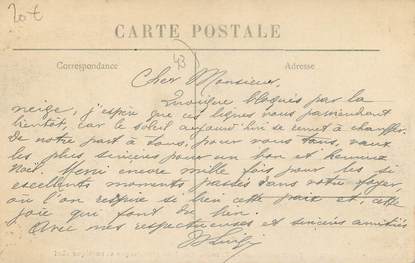 20 €
CARTE POSTALE
43
Correspondance
Adresse
Cher Monsieur,
Quoique bloqués par la
neige, j'espère que ces lignes vous parviendront
bientôt, car le soleil aujourd'hui se remet à chauffer.
De notre part à tous, pour vous tous, vœux
les plus sincères pour un bon et heureux
Noël. Merci encore mille fois pour les si
excellents moments passés dans votre foyer,
où l'on respire si bien cette paix et cette
joie qui font du bien.
Avec nos respectueuses et sincères amitiés